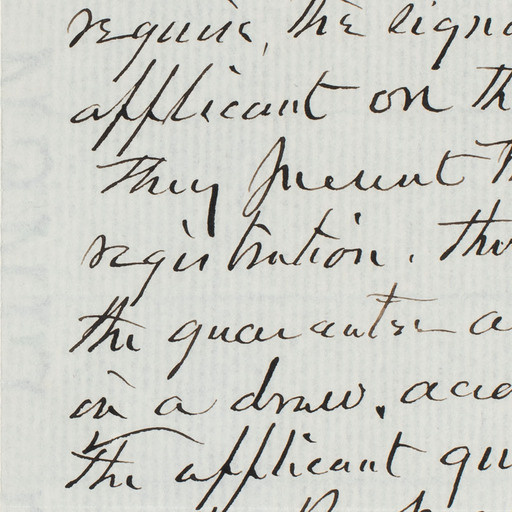 require, the signa
applicant on th
they present th
registration. the
the guarantee a
in a draw. acco
The applicant gu